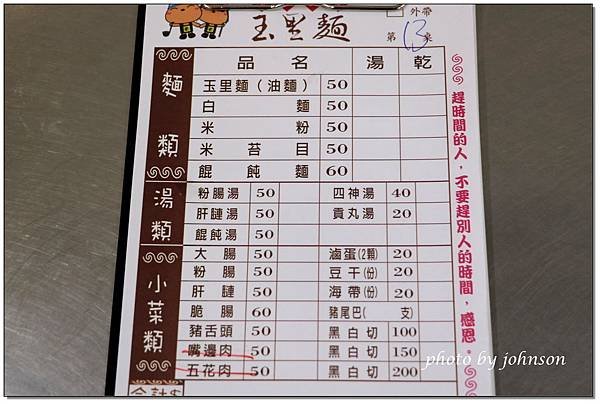 玉里麵
外帶
第13桌
品名 湯 乾
麵類
玉里麵（油麵） 50
白麵 50
米粉 50
米苔目 50
餛飩麵 60
湯類
粉腸湯 50 四神湯 40
肝膥湯 50 貢丸湯 20
餛飩湯 50
小菜類
大腸 50 滷蛋(2顆) 20
粉腸 50 豆干(份) 20
肝膥 50 海帶(份) 20
脆腸 60 豬尾巴( 支)
豬舌頭 50 黑白切 100
嘴邊肉 50 黑白切 150
五花肉 50 黑白切 200
合計$
趕時間的人，不要趕別人的時間，感恩。
photo by johnson